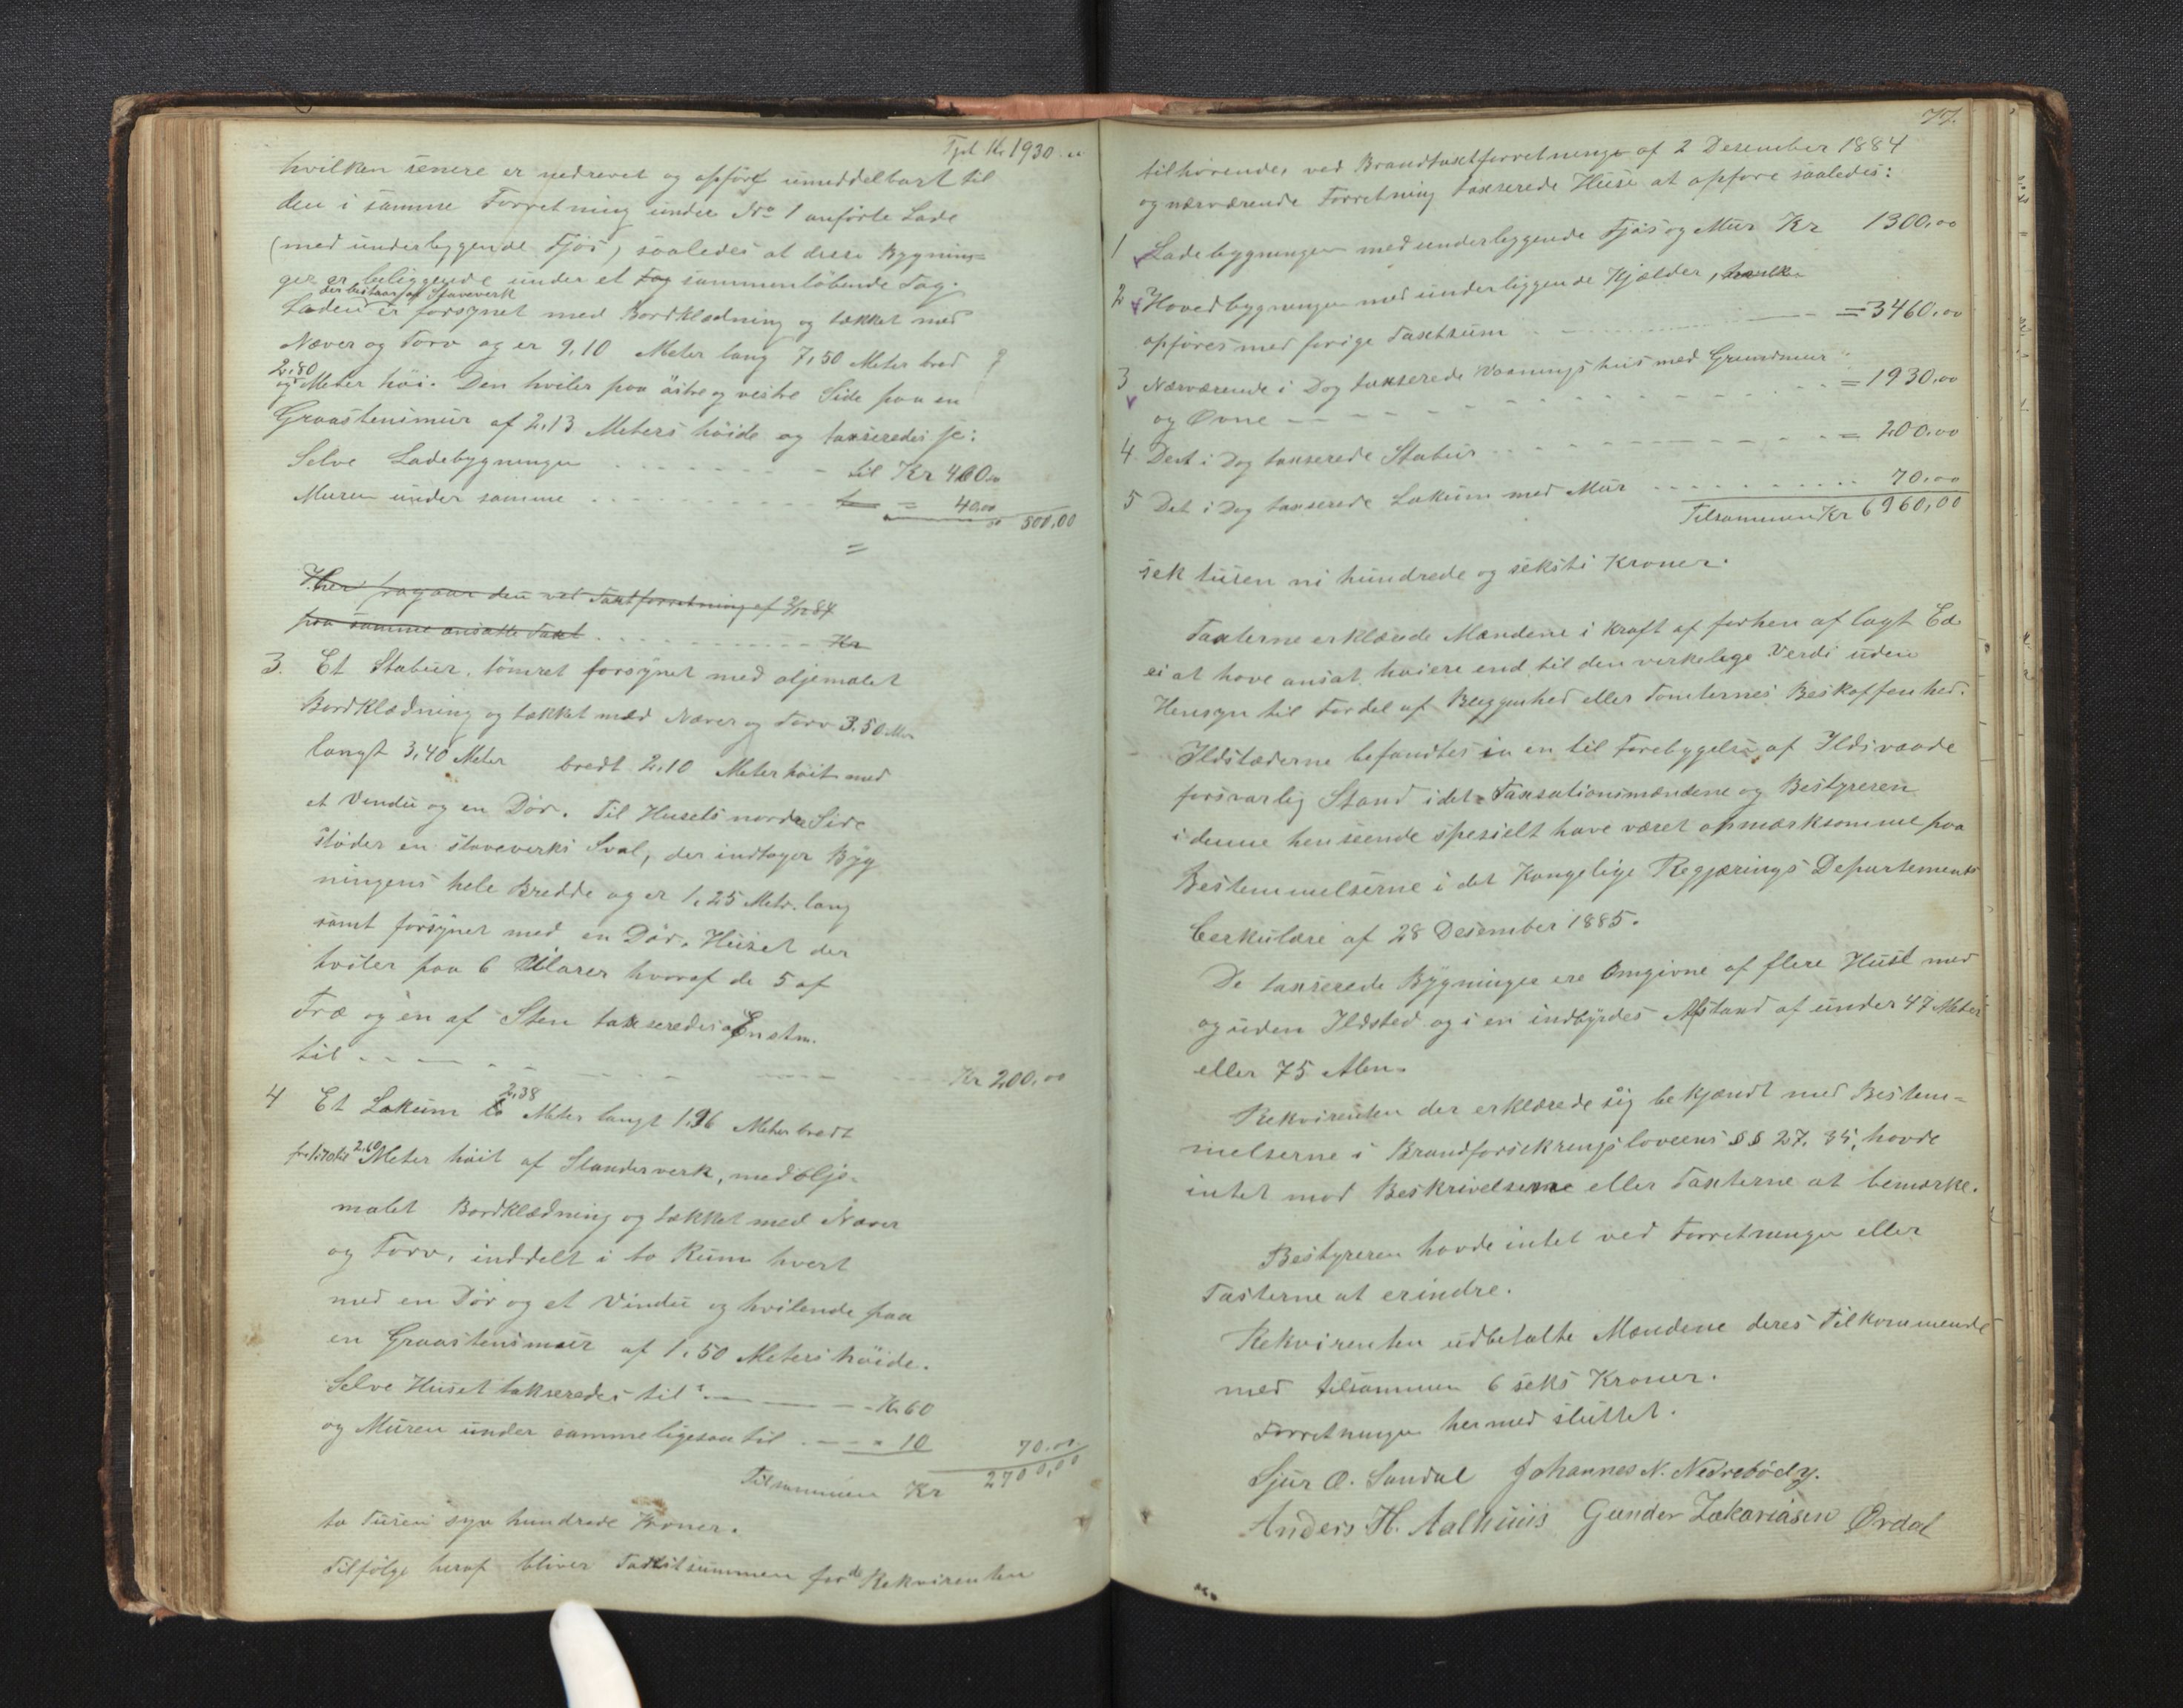 Tpt Kr 1930.00
hvilken senere er nedrevet og opført umiddelbart til
den i samme Forretning under No 1 anførte Lade
(med underbyggende Fjøs) saaledes at disse Bygnin=
ger er beliggende under et Tag sammenløbende Tag.
der bestaar af Stavverk
Laden er forsynet med Bordklædning og tækket med
Næver og Torv og er 9,10 Meter lang 7,50 Meter bred
2,80
og Meter høi. Den hviler paa østre og vestre Side paa en
Graastensmur af 2,13 Meters høide og taxseredes
Selve Ladebygningen . . . . . . . til Kr 460.00
Muren under samme . . . . . . . = 40.00
500,00
=
Her fragaar den ved Taxtforretning af 2/12 84
paa samme ansatte Taxt . . . . . . . Kr
3. Et Stabur, tømret forsynet med oljemalet
Bordklædning og tækket med Næver og Torv 3.50 Mtr
langt 3,40 Meter bredt 2,10 Meter høit med
et Vindu og en Dør. Til Husets nordre Side
støder en staveverks Sval, der indtager Byg
ningens hele Bredde og er 1,25 Metr. lang
samt forsynet med en Dør. Huset der
hviler paa 6 Pilarer hvoraf de 5 af
Træ og en af Sten taxseredes
til - - - - Kr 200,00
2,38
4 Et Lokum Meter langt 1,96 Meter bredt
fra 1.70 til 2.60 Meter høit af Standerverk, med olje-
malet Bordklædning og tækket med Næver
og Torv, inddelt i to Rum hvert
med en Dør og et Vindu og hvilende paa
en Graastensmur af 1,50 Meters høide.
Selve Huset takseredes til - - - Kr 60
og Muren under samme ligesaa til - - - " 10
70.00
Tilsammen Kr 2700,00
to Tusen syv hundrede Kroner.
Tilfølge heraf bliver Taxtsummen for de Rekvirenten
77.
tilhørende, ved Brandtaxtforretninge af 2 Desember 1884
og nærværende Forretning taxserede Huse at opføre saaledes:
1 Ladebygningen med underbyggende Fjøs og Mur Kr 1300,00
2 Hovedbygningen med underliggende Kjælder, hvilke
opføres med forige Taxtsum - - - = 3460,00
3 Nærværende i Dag taxserede Vaaningshus med Grundmur
og Ovne - - - = 1930,00
4. Det i Dag taxserede Stabur - - - = 200.00
5 Det i Dag taxserede Lokum med Mur . . . . . . . 70.00
Tilsammen Kr 6960,00
sek tusen ni hundrede og seksti Kroner.
Taxterne erklærede Mændene i Kraft af forhen aflagt Ed
ei at have ansat høiere end til den verkelege Verdi uden
Hensyn til Fordel af Beliggenhed eller Tomternes Beskaffenhed.
Ildstæderne befandtes i en til Forebyggelse af Ildsvaade
forsvarlig Stand idet Taxsationsmændene og Bestyreren
i denne henseende spesielt have været opmærksomme paa
Bestemmelserne i det Kongelige Regjærings Departements
Cerkulære af 28 Desember 1885.
De taxserede Bygninger ere Omgivne af flere Huse med
og uden Ildsted og i en indbyrdes Afstand af under 47 Meter
eller 75 Alen.
Rekvirenten der erklærede sig bekjændt med Bestem=
melserne i Brandforsikringsloveens §§ 27. 35, havde
intet mod Beskrivelserne eller Taxterne at bemærke.
Bestyreren havde intet ved Forretningen eller
Taxterne at erindre.
Rekvirenten udbetalte Mændene deres Tilkommende
med tilsammen 6 seks Kroner.
Forretningen hermed sluttet.
Sjur O. Sandal Johannes N. Nedrebödy.
Anders H. Aalhuus Gunder Zakariasen Ørdal